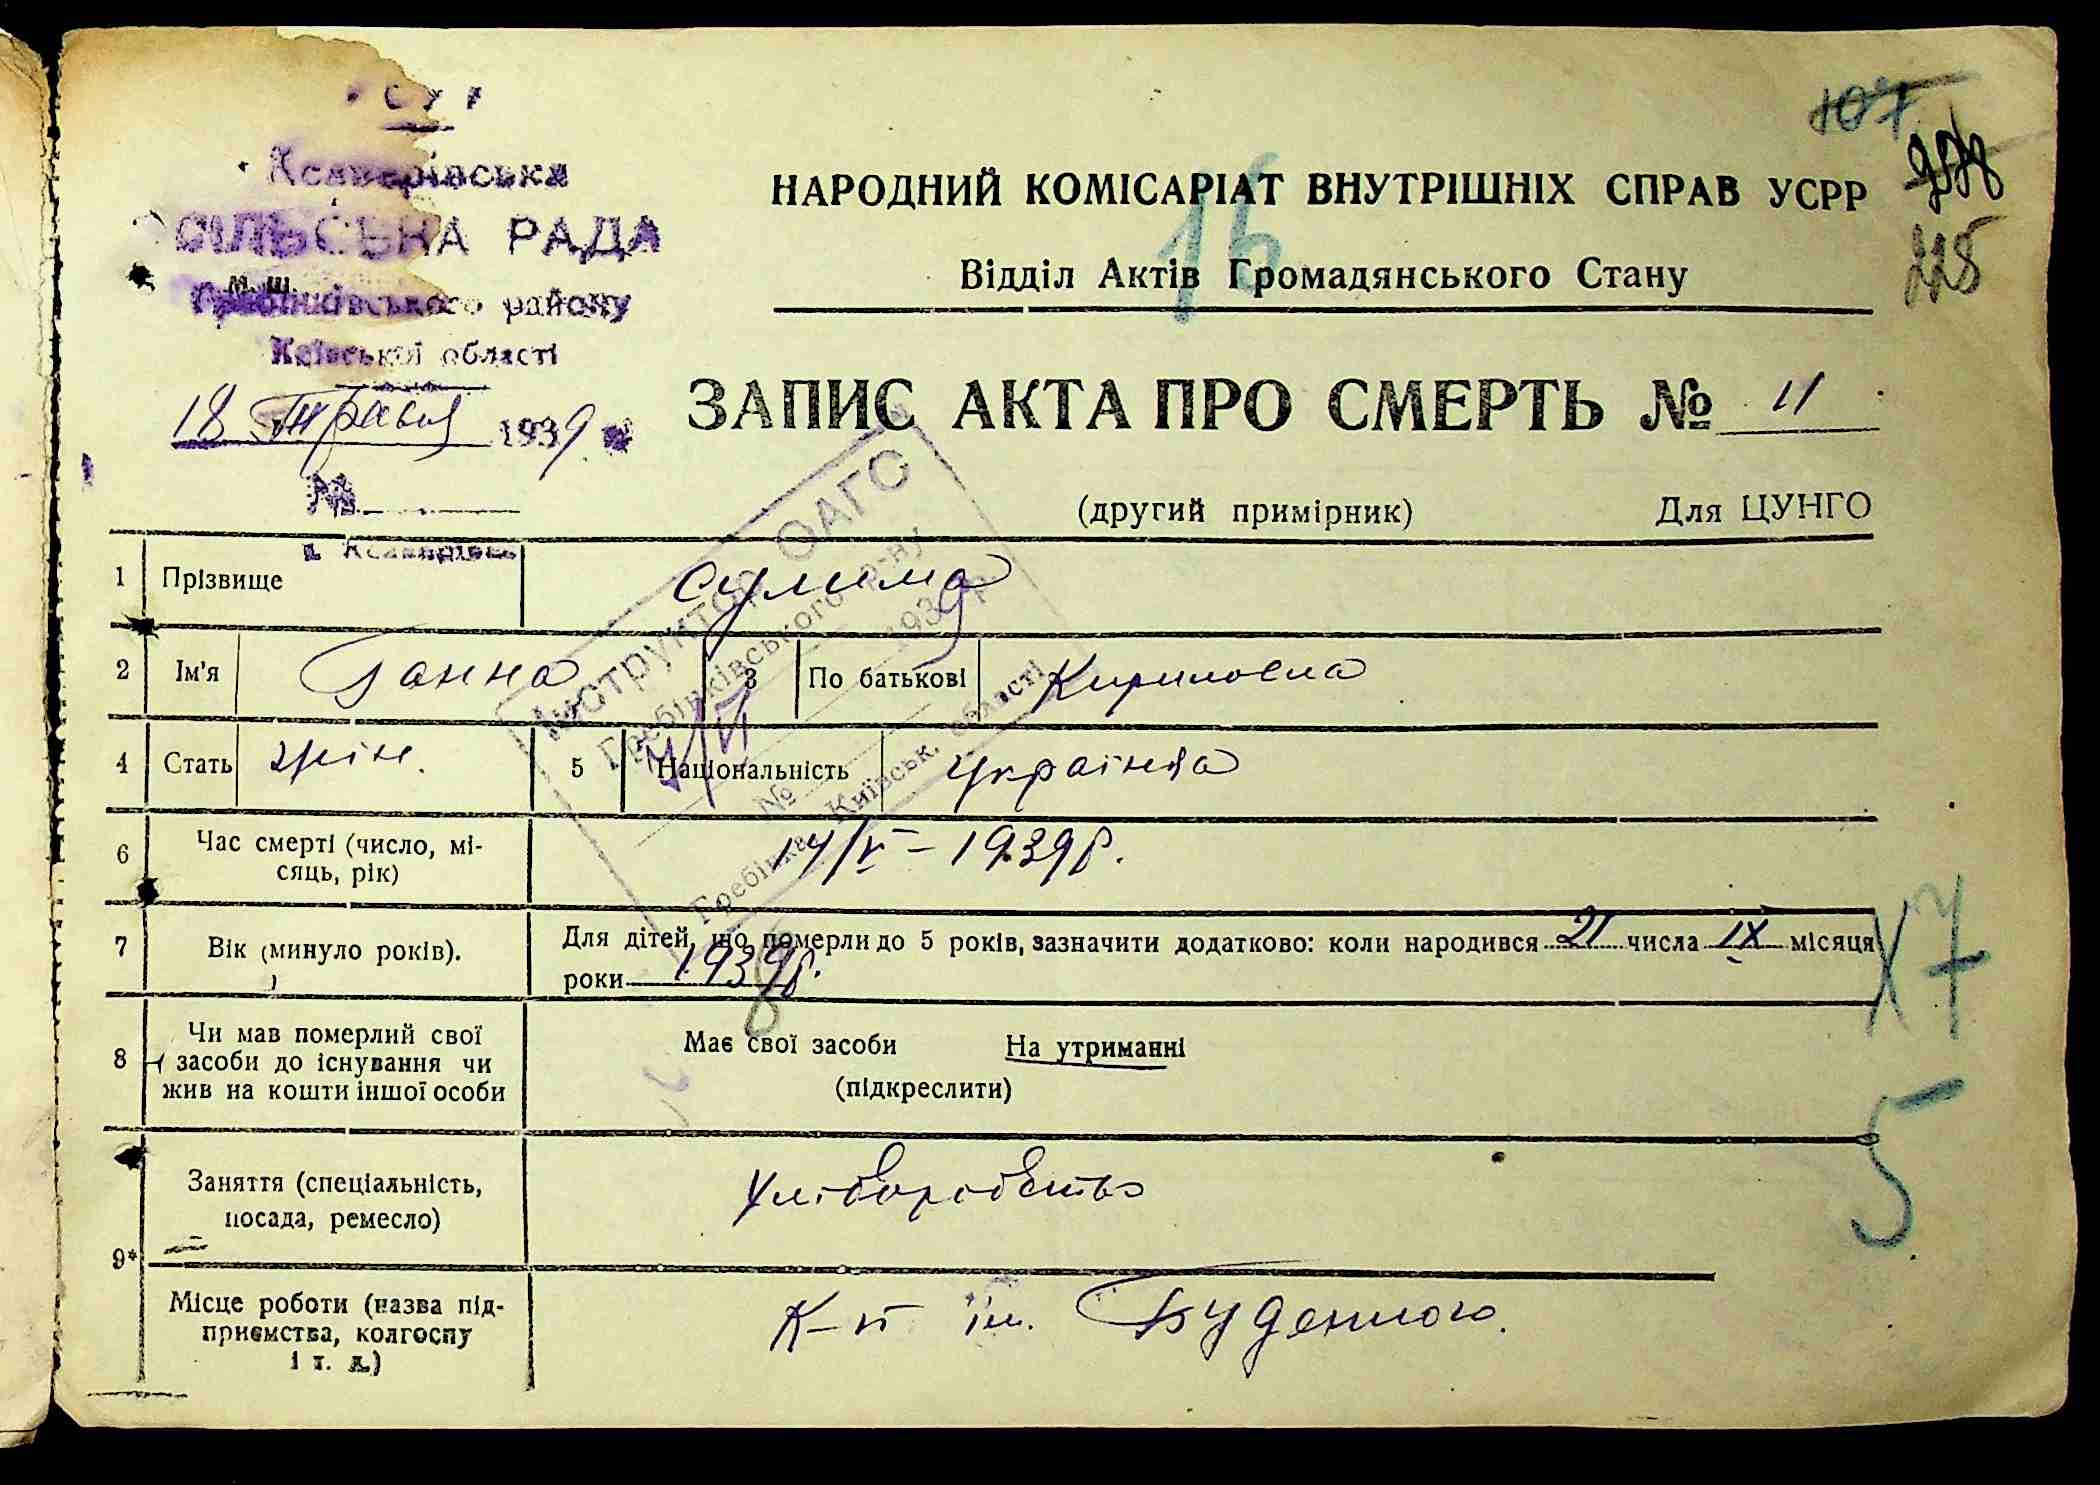 107
228
16
Ксаверівська
СІЛЬСЬКА РАДА
м. ш.
Гребінківського району
Київської області
18 Травня 1939
№
НАРОДНИЙ КОМІСАРІАТ ВНУТРІШНІХ СПРАВ УСРР
Відділ Актів Громадянського Стану
ЗАПИС АКТА ПРО СМЕРТЬ № 11
(другий примірник) Для ЦУНГО
Інструктор ОАГС
Гребінківського р-ну
193 р
№
Гребінка Київськ. області
1 Прізвище Сулима
2 Ім'я Ганна 3 По батькові Кириловна
4 Стать жін. 5 Національність українка
6 Час смерті (число, мі-
сяць, рік) 14/V – 1939 р.
7 Вік (минуло років). Для дітей, що померли до 5 років, зазначити додатково: коли народився 21 числа IX місяця
роки 1939 р.
Х7
8 Чи мав померлий свої
засоби до існування чи
жив на кошти іншої особи
Має свої засоби На утриманні
(підкреслити)
5
9* Заняття (спеціальність,
посада, ремесло) Хліборобство
Місце роботи (назва під-
приємства, колгоспу
і т. д.) К-п ім. Буденного.